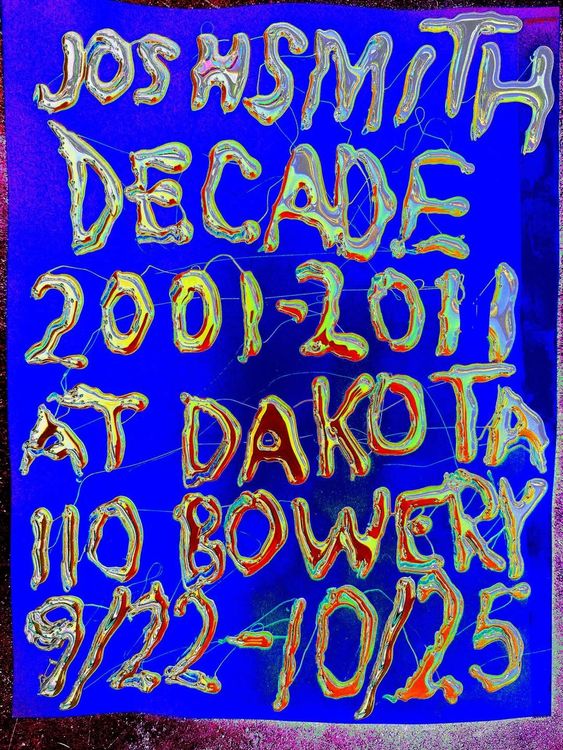 JOSH SMITH
DECADE
2001-2011
AT DAKOTA
110 BOWERY
9/22-10/25